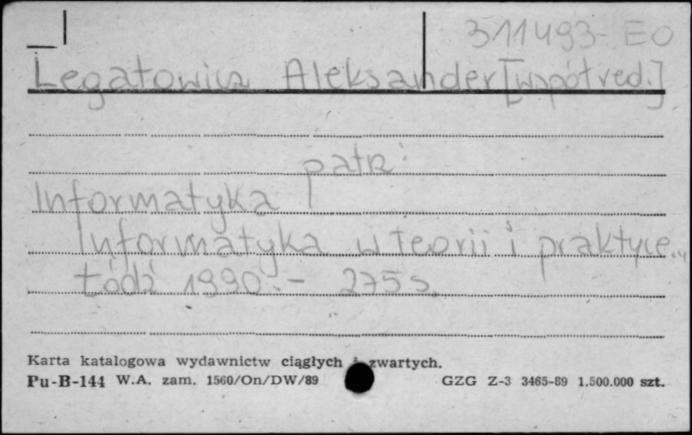 311493- EO
Legatowicz Aleksander [współred.]
patrz:
Informatyka
Informatyka w teorii i praktyce...
Łódź 1990.- 275 s.
Karta katalogowa wydawnictw ciągłych i zwartych.
Pu-B-144 W.A. zam. 1560/On/DW/89 GZG Z-3 3465-89 1.500.000 szt.